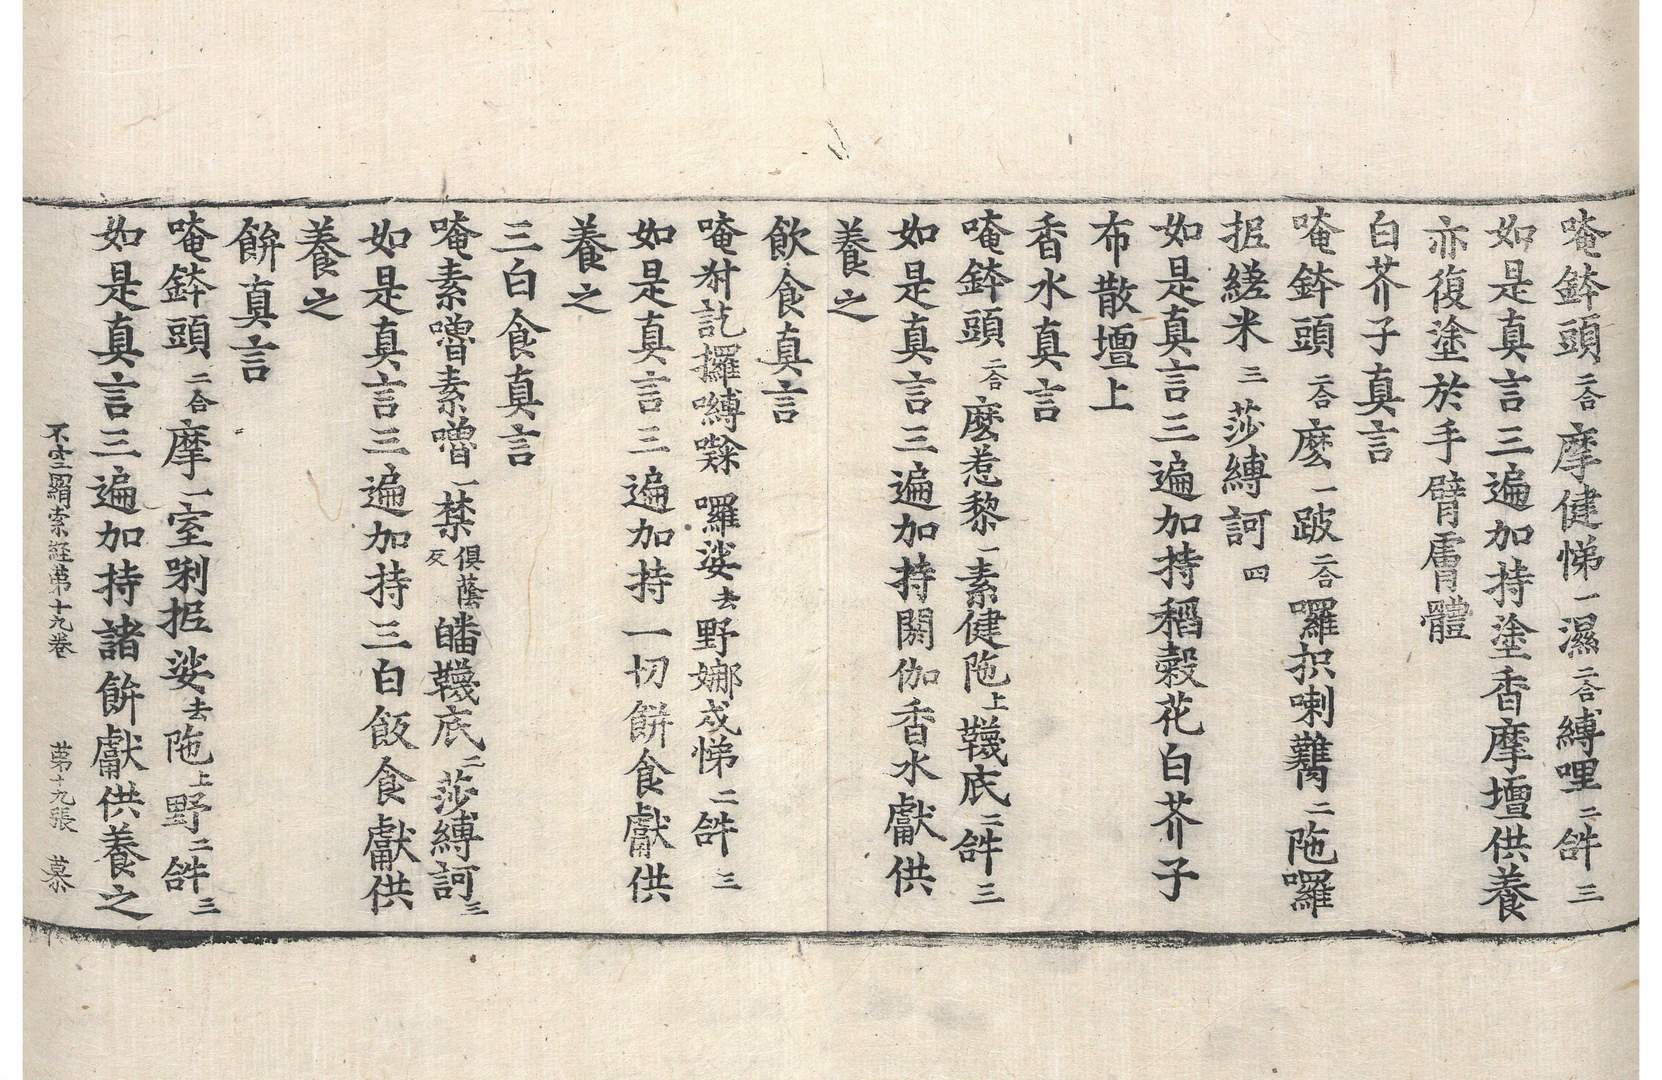 唵鉢頭二合摩健悌一濕二合縛哩二𤙖三
如是真言三遍加持塗香摩壇供養
亦復塗於手臂膚體
白芥子真言
唵鉢頭二合麽一跛二合囉抧喇䕼二陁囉
抳縒米三莎縛訶四
如是真言三遍加持稻穀花白芥子
布散壇上
香水真言
唵鉢頭二合麽惹黎一素健陁上韈底二𤙖三
如是真言三遍加持閼伽香水獻供
養之
飲食真言
唵矝訖攞縛囉娑去野娜戍悌二𤙖三
如是真言三遍加持一切餅食獻供
養之
三白食真言
唵素嚕素嚕一禁俱蔭反皤韈底二莎縛訶三
如是真言三遍加持三白飯食獻供
養之
餅真言
唵鉢頭二合摩一室唎抳娑去陁上野二𤙖三
如是真言三遍加持諸餅獻供養之
不空羂索經第十九卷 第十九張 慕